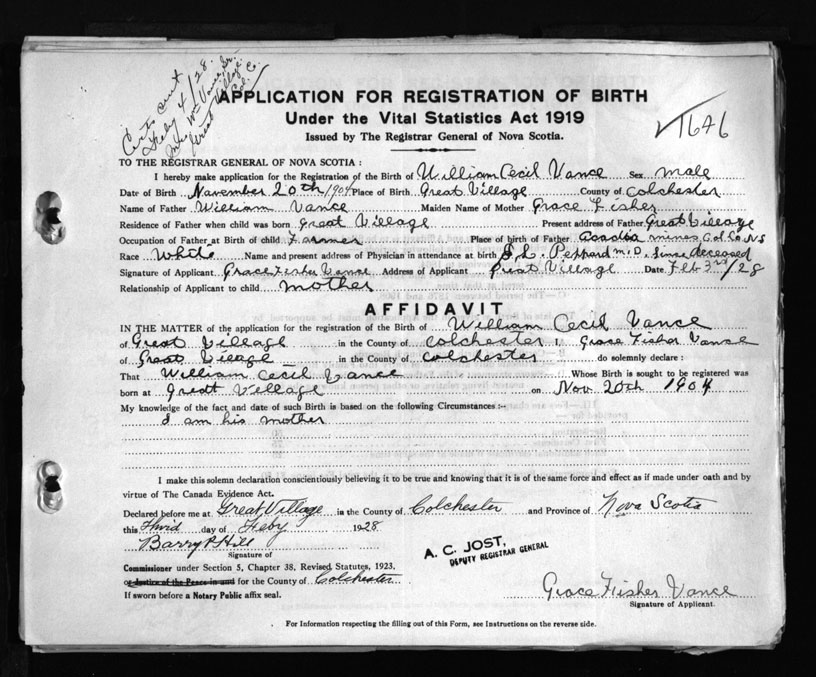 Certs sent
Feby 4/28.
Mrs Wm Vance Sr.
Great Village
Col. Co.
APPLICATION FOR REGISTRATION OF BIRTH
Under the Vital Statistics Act 1919
Issued by The Registrar General of Nova Scotia.
1646
TO THE REGISTRAR GENERAL OF NOVA SCOTIA :
I hereby make application for the Registration of the Birth of William Cecil Vance Sex male
Date of Birth November 20th/1904 Place of Birth Great Village County of Colchester
Name of Father William Vance Maiden Name of Mother Grace Fisher
Residence of Father when child was born Great Village Present address of Father Great Village
Occupation of Father at Birth of child Farmer Place of birth of Father Acadia mines Col Co NS
Race White Name and present address of Physician in attendance at birth Peppard M.D. Since deceased
Signature of Applicant Grace Fisher Vance Address of Applicant Great Village Date Feb 3rd/28
Relationship of Applicant to child mother
AFFIDAVIT
IN THE MATTER of the application for the registration of the Birth of William Cecil Vance
of Great Village in the County of Colchester I, Grace Fisher Vance
of Great Village in the County of Colchester do solemnly declare :
That William Cecil Vance Whose Birth is sought to be registered was
born at Great Village on Nov 20th 1904
My knowledge of the fact and date of such Birth is based on the following Circumstances :-
I am his mother
I make this solemn declaration conscientiously believing it to be true and knowing that it is of the same force and effect as if made under oath and by
virtue of The Canada Evidence Act.
Declared before me at Great Village in the County of Colchester and Province of Nova Scotia
this Third day of Feby 1928
Barry P Hill
Signature of
A. C. JOST,
DEPUTY REGISTRAR GENERAL
Commissioner under Section 5, Chapter 38, Revised Statutes, 1923,
or Justice of the Peace in and for the County of Colchester
If sworn before a Notary Public affix seal.
Grace Fisher Vance
Signature of Applicant.
For Information respecting the filling out of this Form, see Instructions on the reverse side.